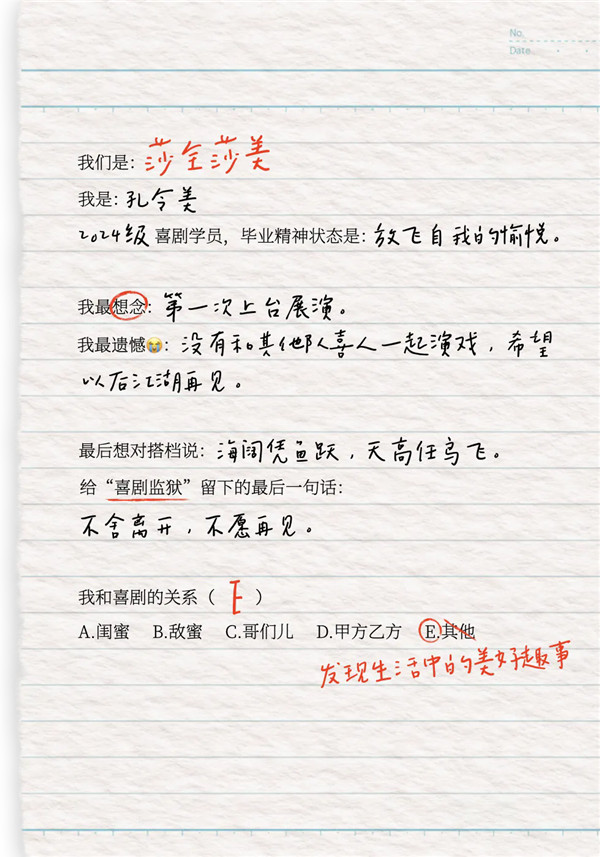 No.
Date
我们是：莎全莎美
我是：孔令美
2024级 喜剧学员，毕业精神状态是：放飞自我的愉悦。
我最想念：第一次上台展演。
我最遗憾😭：没有和其他人喜人一起演戏，希望
以后江湖再见。
最后想对搭档说：海阔凭鱼跃，天高任鸟飞。
给“喜剧监狱”留下的最后一句话：
不舍离开，不愿再见。
我和喜剧的关系（ E ）
A.闺蜜 B.敌蜜 C.哥们儿 D.甲方乙方 E.其他
发现生活中的美好趣事